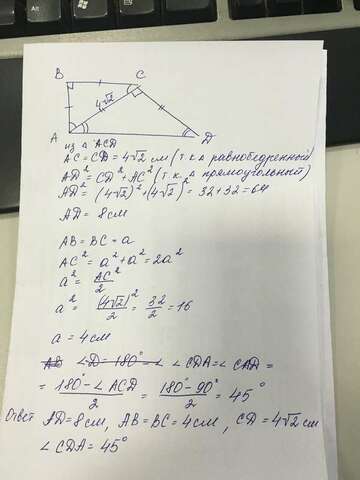 B C
4√2
A D
из Δ ACD
AC = CD = 4√2 см (т.к Δ равнобедренный)
AD² = CD² + AC² (т.к. Δ прямоугольный)
AD² = (4√2)² + (4√2)² = 32 + 32 = 64
AD = 8 см
AB = BC = a
AC² = a² + a² = 2a²
a² = AC²/2
a² = (4√2)²/2 = 32/2 = 16
a = 4 см
∠D = 180° - ∠ ∠CDA = ∠CAD =
= 180° - ∠ACD/2 = 180° - 90°/2 = 45°
Ответ AD = 8 см, AB = BC = 4 см, CD = 4√2 см
∠CDA = 45°